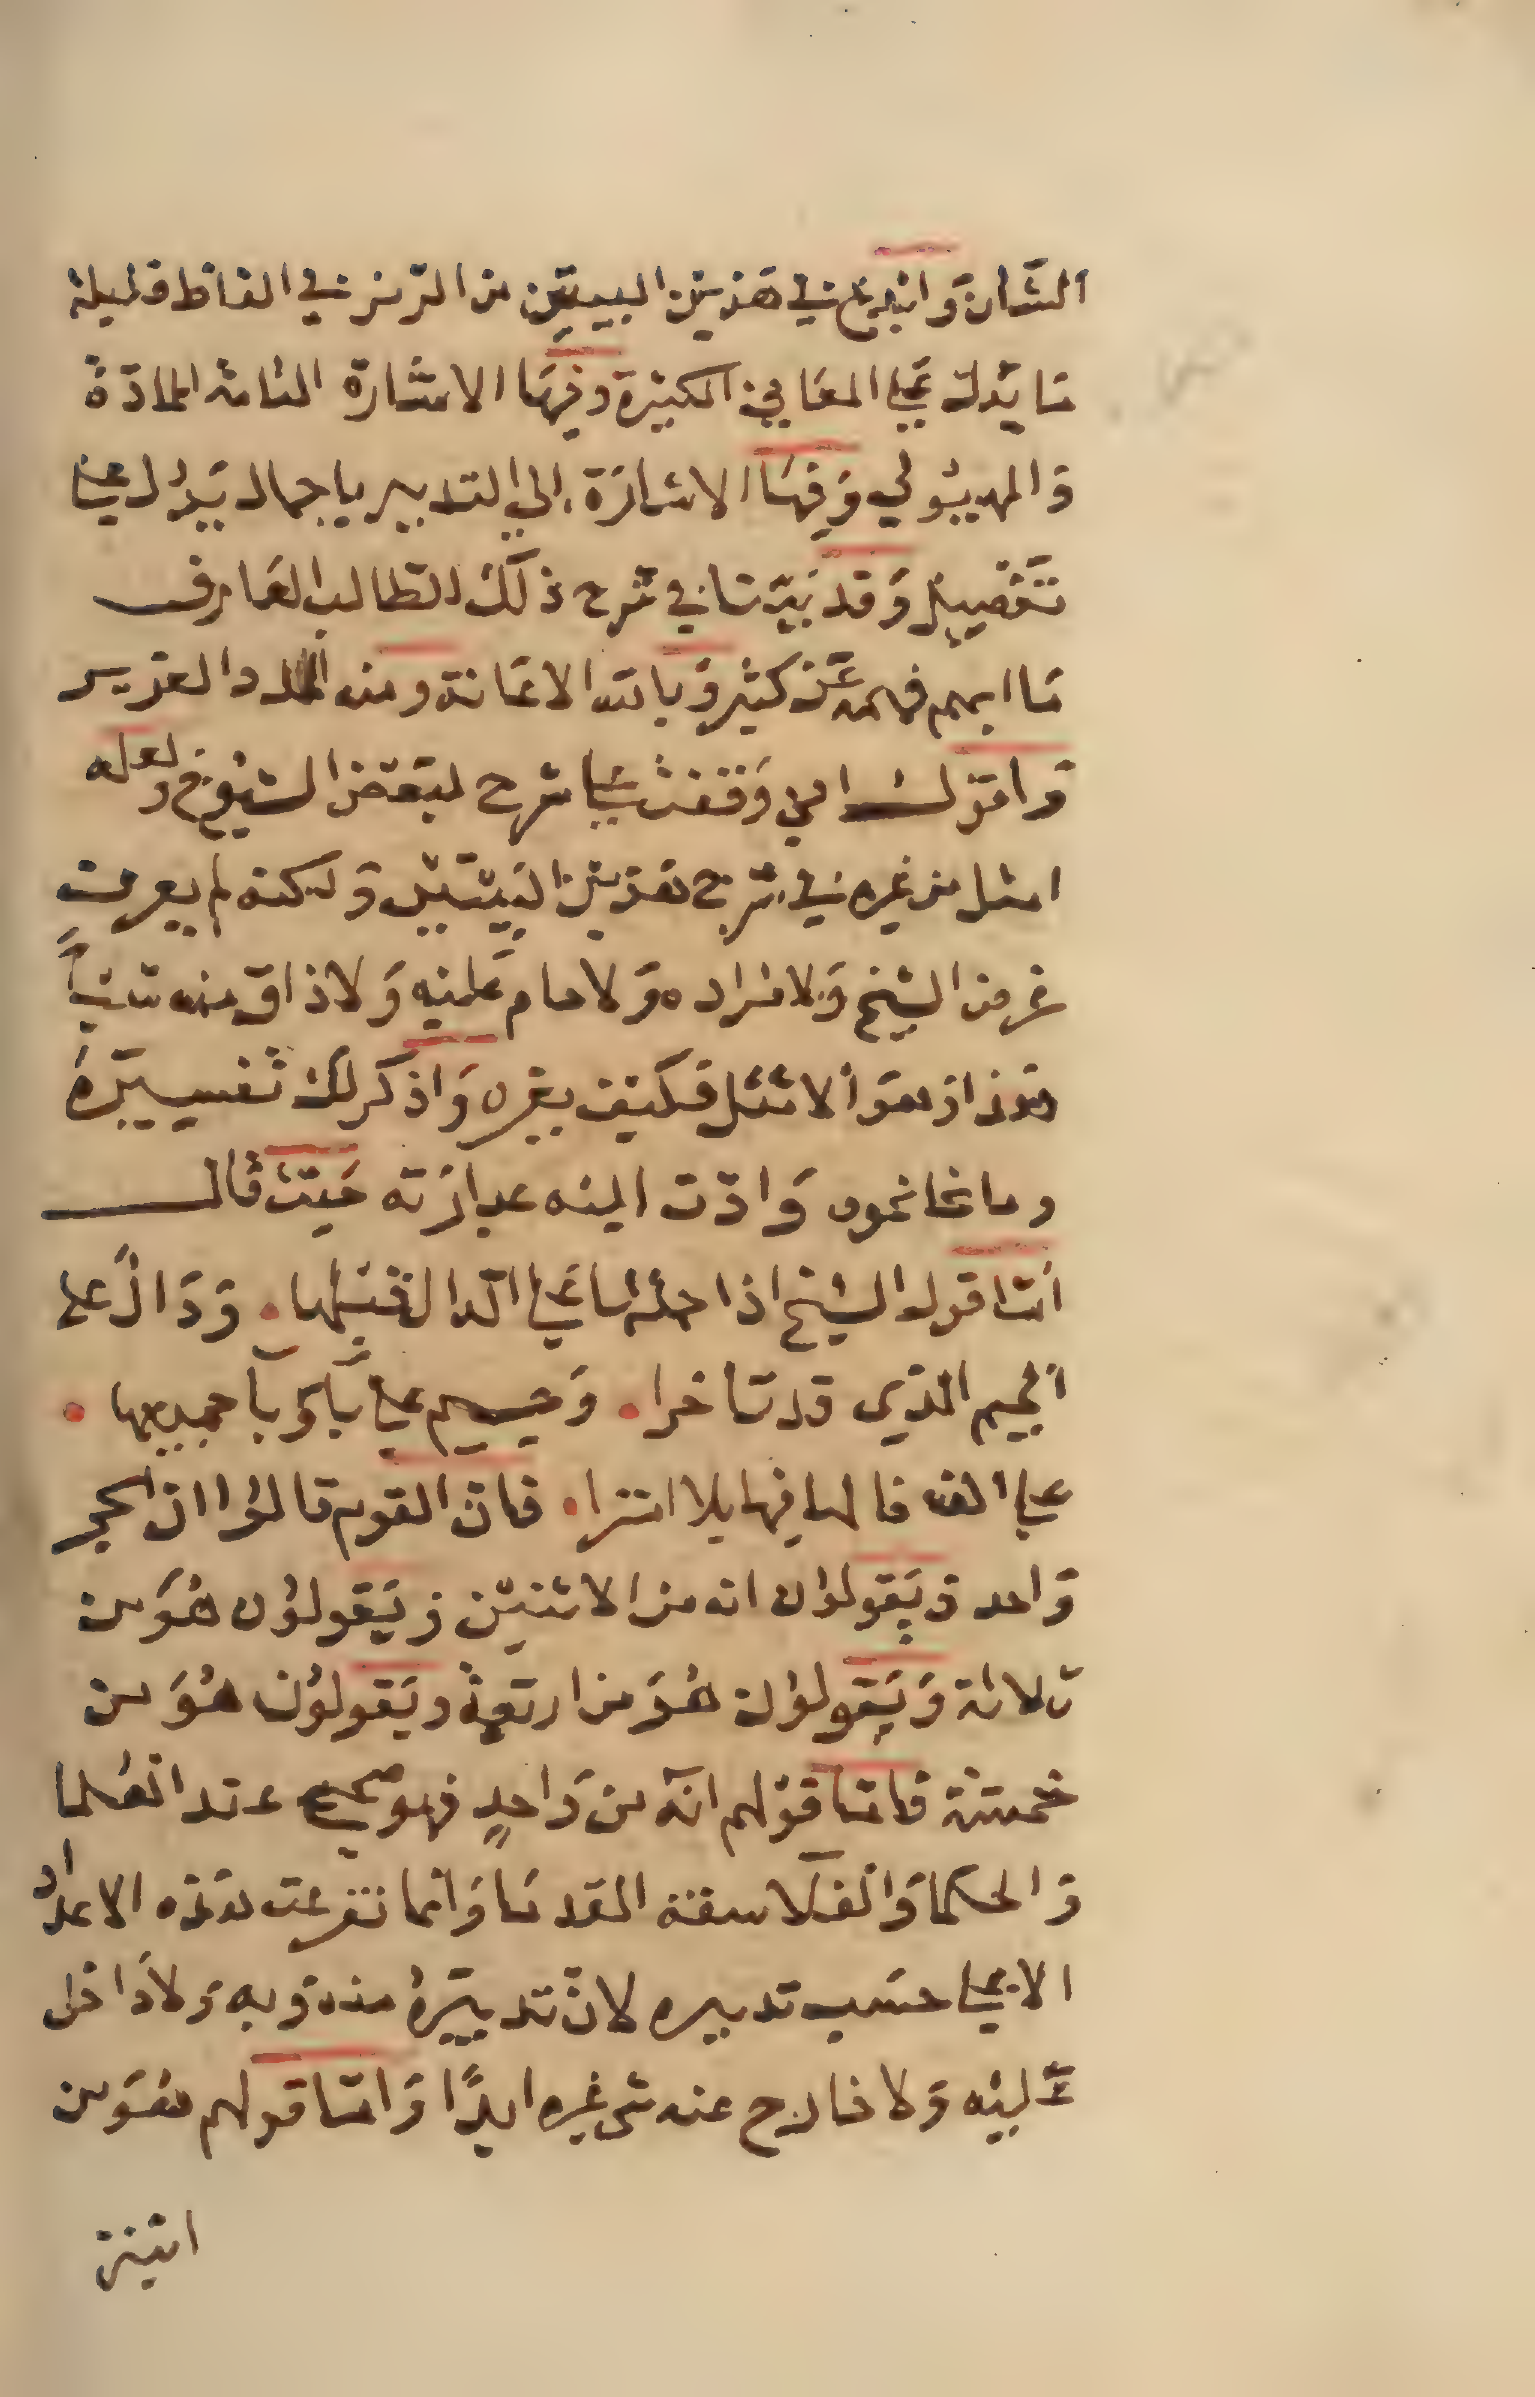 الشان وابدع في هذين البيتين من الرمز في الفاظ قليلة
ما يدل على المعاني الكثيرة وفيها الاشارة التامة المادة
والهيولي وفيها الاشارة الي التدبير باجمال يدل علي
تفصيل وقد بينا في شرح ذلك للطالب العارف
ما ابهم فهمه عن كثير وبالله الاعانة ومنه المدد العزيز
واقول اني وقفت على شرح لبعض الشيوخ ولعله
امثل من غيره في شرح هذين البيتين ولكنه لم يعرف
غرض الشيخ ولا مراده ولا حام عليه ولا ذاق منه شيئاً
هذا اذ هو الامثل فكيف بغيره واذكر لك تفسيره
وما نحا نحوه وادت اليه عبارته حيث قال
اما قول الشيخ اذا حلها على الدال قبلها ۰ ودال على
الجيم الذي قد تاخرا ۰ وجيم على باء وبا جميعها ۰
على الف فالها فيها بلا امترا ۰ فان القوم قالوا ان الحجر
واحد ويقولون انه من الاثنين ويقولون هو من
ثلاثة ويقولون هو من اربعة ويقولون هو من
خمسة فاما قولهم انه من واحدٍ فهو صحيح عند العلما
والحكما والفلاسفة القدما وانما تفرعت هذه الاعداد
الا على حسب تدبيره لان تدبيره منه وبه ولا داخل
عليه ولا خارج عنه شى غيره ابدًا واما قولهم هو من
اثنين